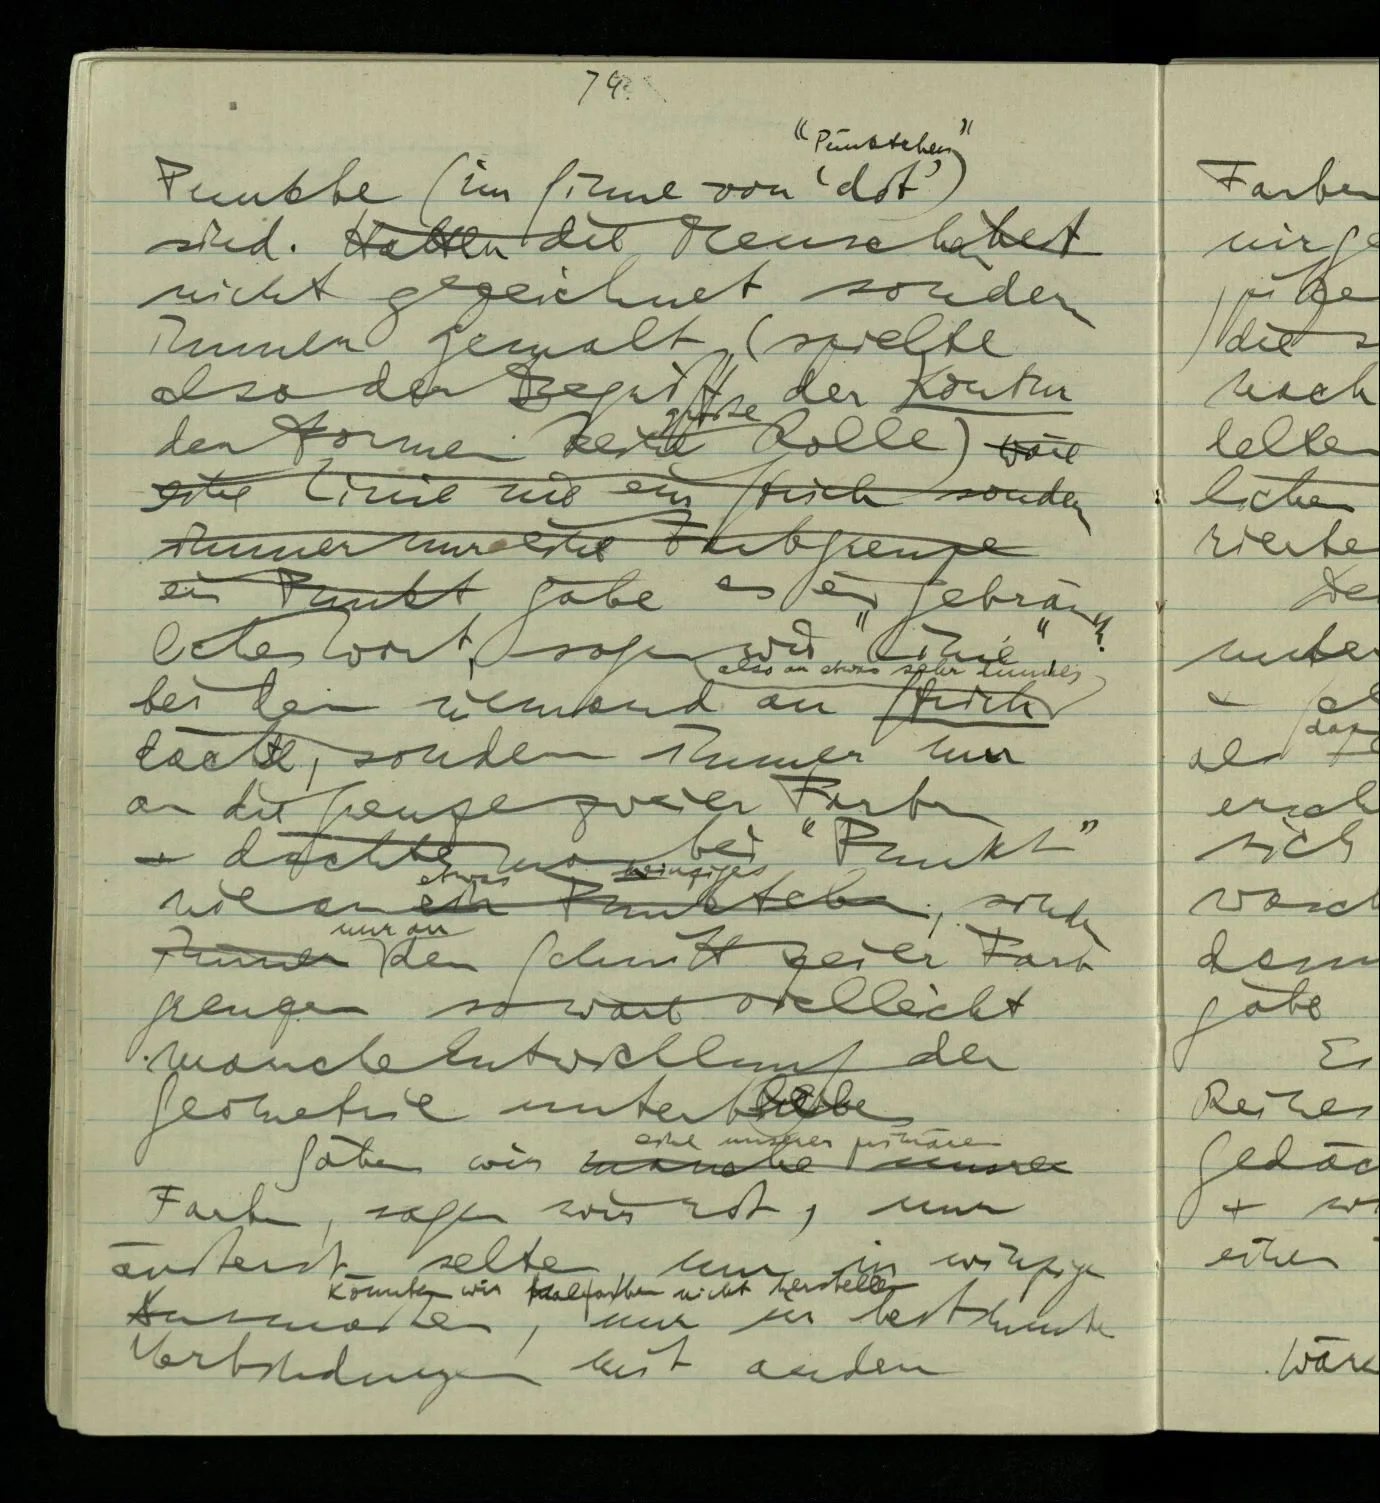 74
"Pünktchen"
Punkte (im Sinne von 'dot')
sind. Hätten die Menschen
nicht gezeichnet sondern
immer gemalt (spielte
also der Begriff der Kontur
der Formen keine große Rolle) wäre
eine Linie nie ein Strich sondern
immer nur eine Farbgrenze
ein Punkt gäbe es ein gebräuch
liches Wort, sagen wir "Linie"
also an etwas sehr dünnes
bei dem niemand an Strich
dächte, sondern immer nur
an die Grenze zweier Farben
+ dächte man bei "Punkt"
etwas winziges
nie an ein Pünktchen, sondern
nur an
immer den Schnitt zweier Farb
grenzen so wäre vielleicht
manche Entwicklung der
Geometrie unterblieben
eine unserer primären
Sähen wir manche unsere
Farben, sagen wir rot, nur
äußerst selten nur in winzigen
könnten wir Malfarben nicht herstellen
Ausmaßen, nur in bestimmten
Verbindungen mit anderen
Farben
nirge
die
noch
selten
lichen
rierte
unter
+
als
ersch
sich
dann
gäbe
Es
Reihe
gedäc
+ wi
einen
wäre